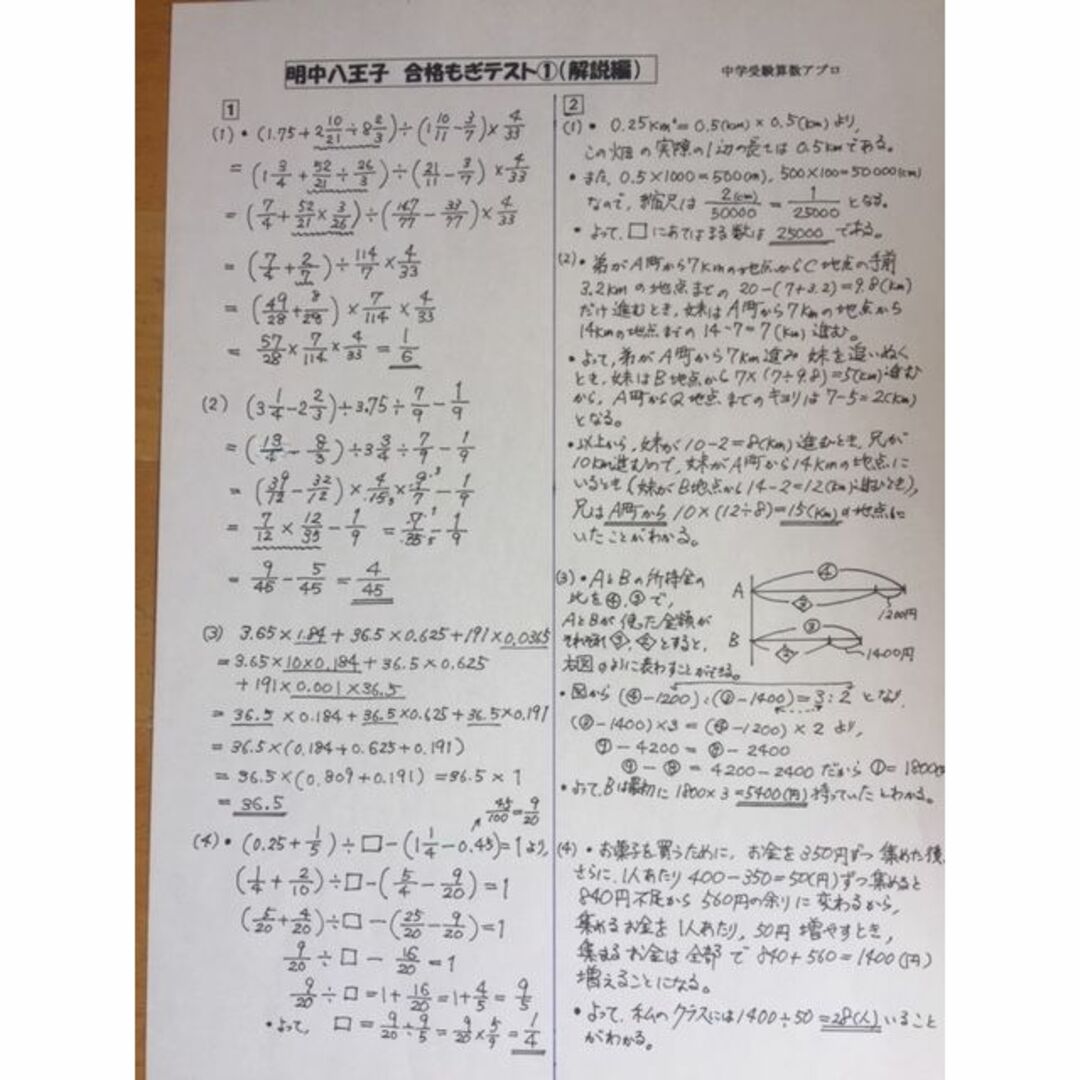 明中八王子 合格もぎテスト①(解説編)
中学受験算数アプロ
1
(1)・(1.75+2 10/21÷8 2/3)÷(1 10/11-3/7)×4/33
=(1 3/4+52/21÷26/3)÷(21/11-3/7)×4/33
=(7/4+52/21×3/26)÷(147/77-33/77)×4/33
=(7/4+2/7)÷114/7×4/33
=(49/28+8/28)×7/114×4/33
=57/28×7/114×4/33=1/6
(2) (3 1/4-2 2/3)÷3.75÷7/9-1/9
=(13/4-8/3)÷3 3/4÷7/9-1/9
=(39/12-32/12)×4/15×9/7-1/9
=7/12×12/35-1/9=7/35-1/9
=9/45-5/45=4/45
(3) 3.65×1.84+36.5×0.625+191×0.0365
=3.65×10×0.184+36.5×0.625
+191×0.001×36.5
=36.5×0.184+36.5×0.625+36.5×0.191
=36.5×(0.184+0.625+0.191)
=36.5×(0.809+0.191)=36.5×1
=36.5
45/100=9/20
(4)・(0.25+1/5)÷□-(1 1/4-0.45)=1より,
(1/4+2/10)÷□-(5/4-9/20)=1
(5/20+4/20)÷□-(25/20-9/20)=1
9/20÷□-16/20=1
9/20÷□=1+16/20=1+4/5=9/5
・よって, □=9/20÷9/5=9/20×5/9=1/4
2
(1)・0.25km²=0.5(km)×0.5(km)より,
この畑の実際の1辺の長さは0.5kmである。
・また, 0.5×1000=500(m), 500×100=50000(cm)
なので, 縮尺は 2(cm)/50000=1/25000 となる。
・よって, □にあてはまる数は 25000 である。
(2)・弟がA町から7kmの地点からC地点の手前
3.2kmの地点までの 20-(7+3.2)=9.8(km)
だけ進むとき, 妹はA町から7kmの地点から
14kmの地点までの 14-7=7(km) 進む。
・よって, 弟がA町から7km進み 妹を追いぬく
とき, 妹はB地点から7×(7÷9.8)=5(km)進む
から, A町からQ地点までのキョリは7-5=2(km)
となる。
・以上から, 妹が10-2=8(km)進むとき, 兄が
10km進むので, 妹がA町から14kmの地点に
いるとき(妹がB地点から14-2=12(km)進むとき),
兄はA町から10×(12÷8)=15(km)の地点に
いたことがわかる。
(3)・AとBの所持金の
比を④,③で,
AとBが使った金額が
それぞれ③,②とすると,
右図のように表わすことができる。
A ④ ③ 1200円
B ③ ② 1400円
・図から(④-1200):(③-1400)=3:2 となり
(③-1400)×3=(④-1200)×2 より,
⑨-4200=⑧-2400
⑨-⑧=4200-2400だから①=1800
・よって, Bは最初に1800×3=5400(円)持っていたとわかる。
(4)・お菓子を買うために, お金を350円ずつ集めた後,
さらに, 1人あたり 400-350=50(円)ずつ集めると
840円不足から560円の余りに変わるから,
集めるお金を1人あたり, 50円増やすとき,
集まるお金は全部で840+560=1400(円)
増えることになる。
・よって, 私のクラスには1400÷50=28(人)いること
がわかる。